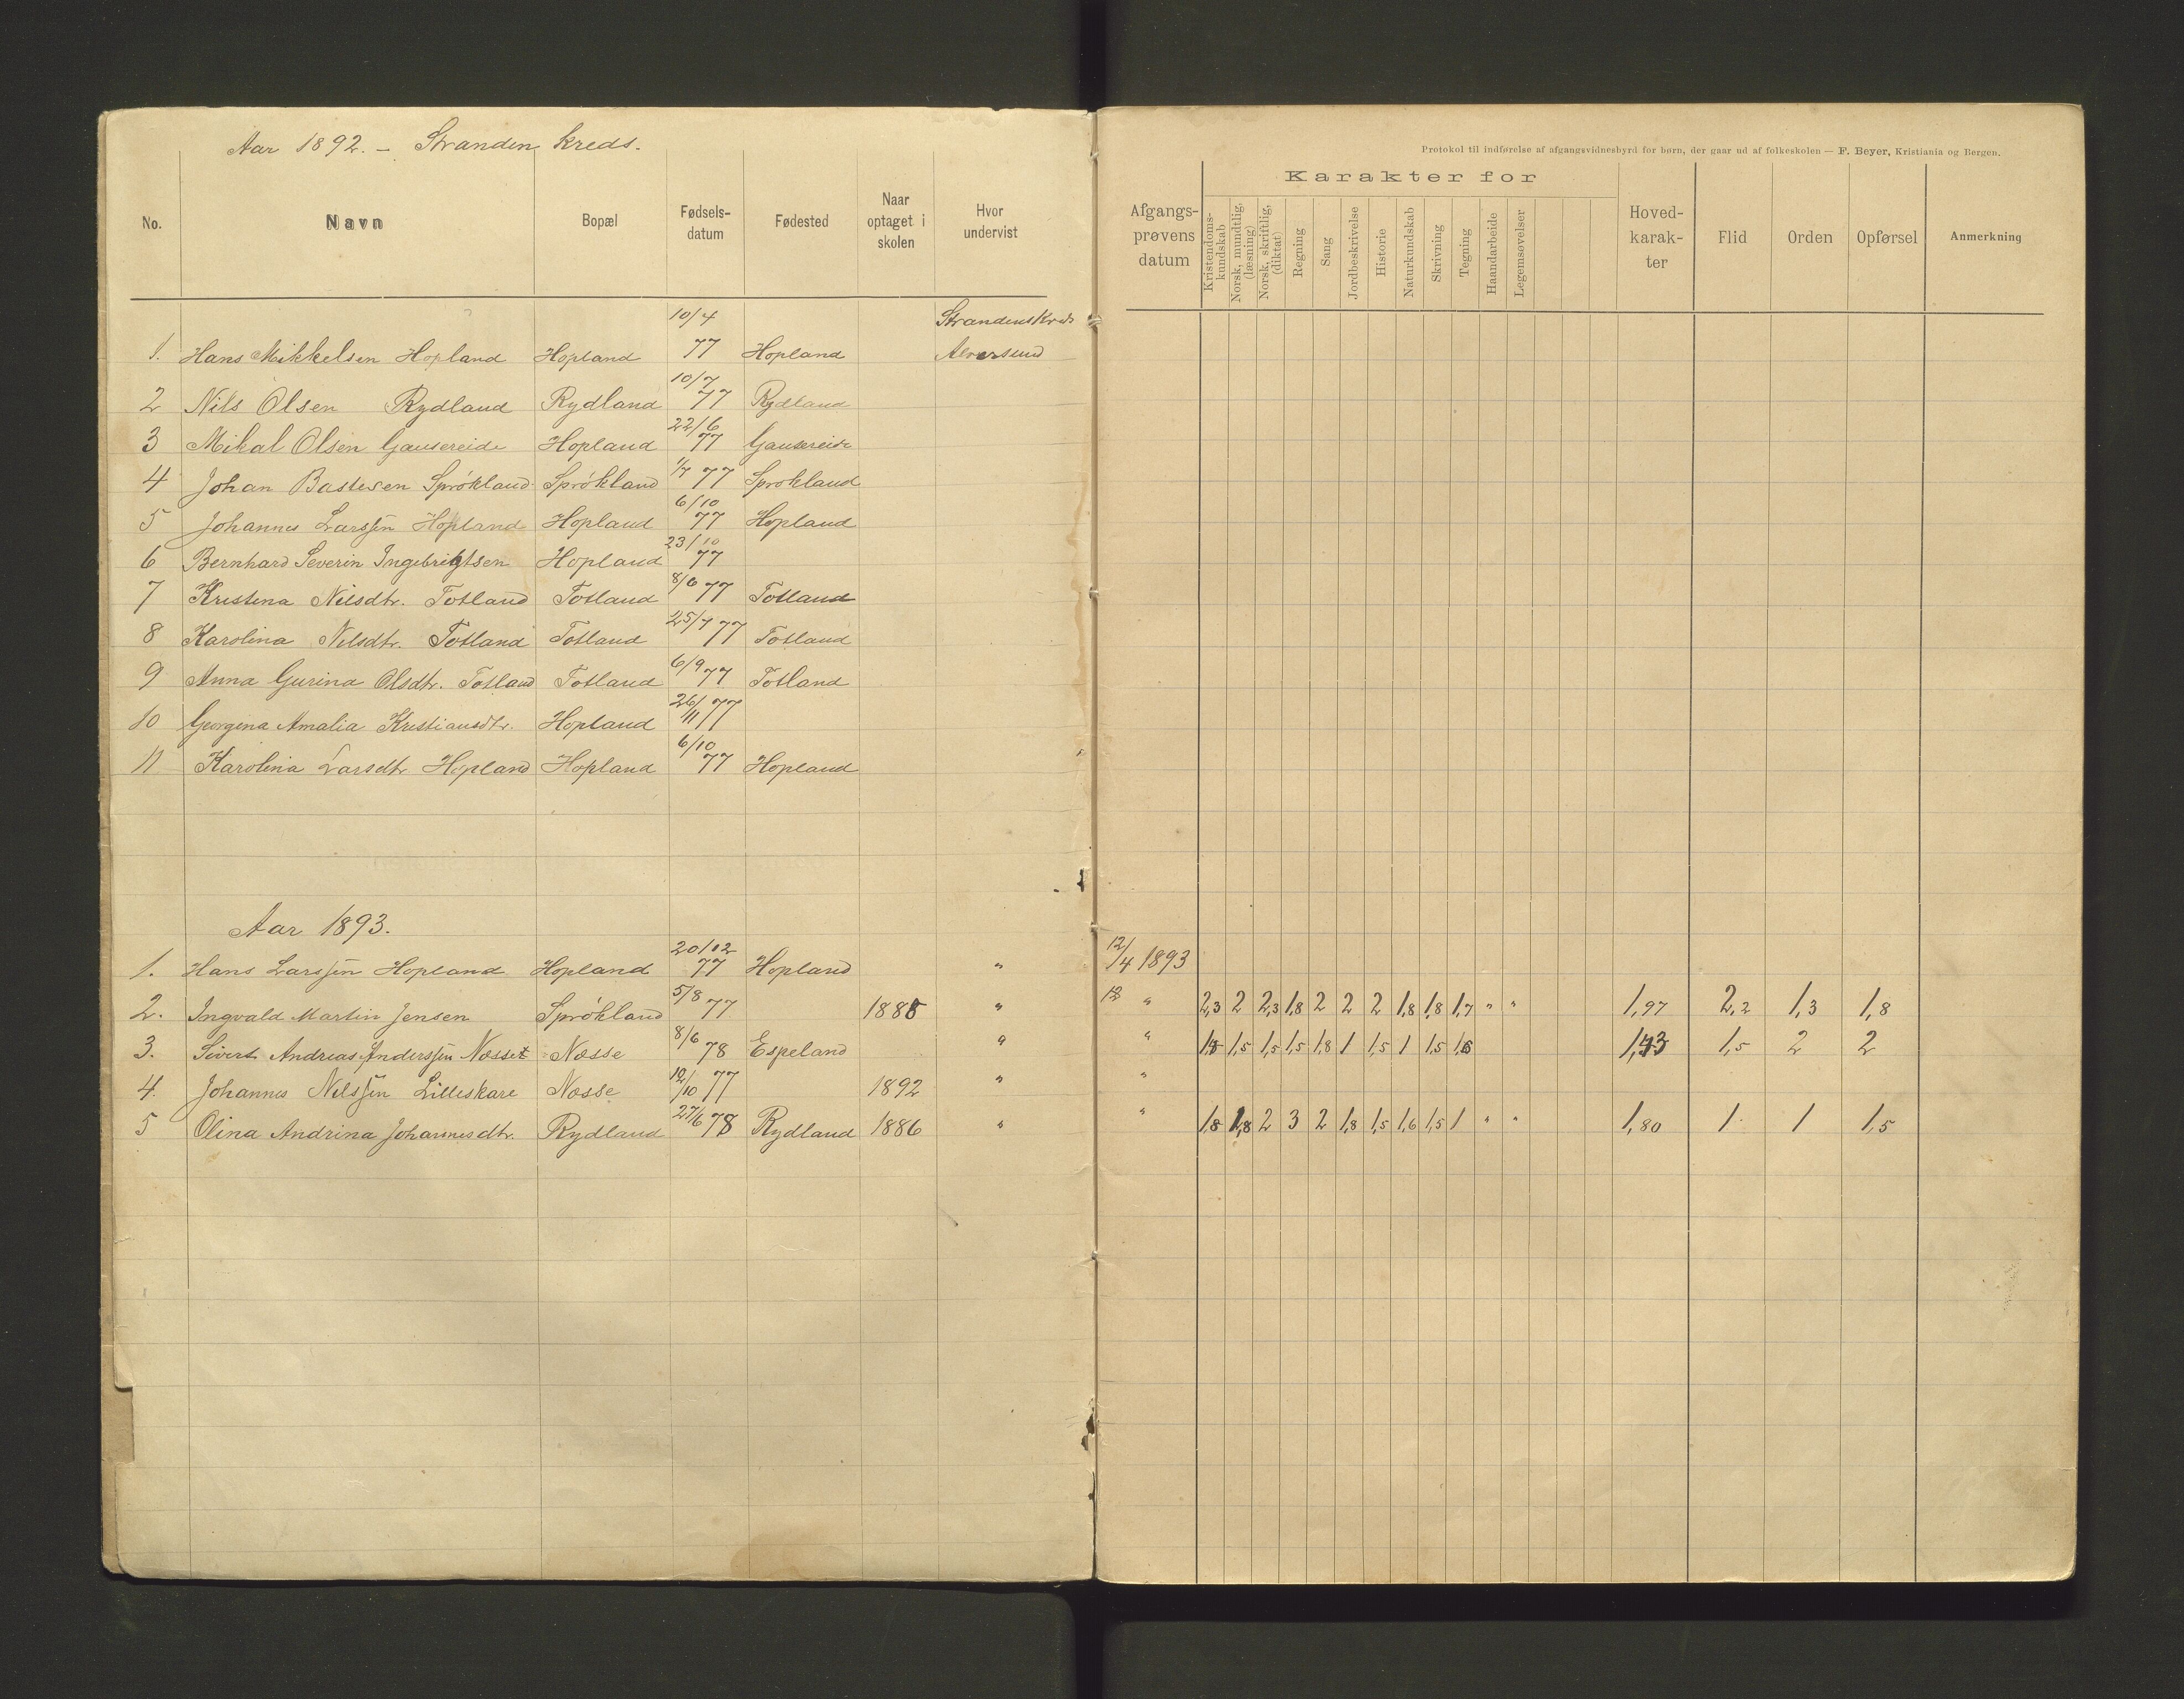 Aar 1892. – Stranden Kreds.
Protokol til indførelse af afgangsvidnesbyrd for børn, der gaar ud af folkeskolen — F. Beyer, Kristiania og Bergen.
No. Navn Bopæl Fødsels-datum Fødested Naar optaget i skolen Hvor undervist
Afgangs-prøvens datum Karakter for Hoved-karak-ter Flid Orden Opførsel Anmerkning
Kristendoms-kundskab Norsk, mundtlig, (læsning) Norsk, skriftlig, (diktat) Regning Sang Jordbeskrivelse Historie Naturkundskab Skrivning Tegning Haandarbeide Legemsøvelser
1. Hans Mikkelsen Hopland Hopland 10/4 77 Hopland Strandens Kreds Alversund
2 Nils Olsen Rydland Rydland 10/7 77 Rydland
3 Mikal Olsen Gausereide Hopland 22/6 77 Gausereide
4 Johan Bastesen Sprókland Sprókland 1/7 77 Sprokland
5 Johannes Larssen Hopland Hopland 6/10 77 Hopland
6 Bernhard Severin Ingebrigtsen Hopland 23/10 77
7 Kristina Nilsdtr. Totland Totland 8/6 77 Totland
8 Karolina Nilsdtr. Totland Totland 25/7 77 Totland
9 Anna Gurina Olsdtr. Totland Totland 6/9 77 Totland
10 Georgina Amalia Kristiansdtr. Hopland 26/11 77
11 Karolina Larsdtr Hopland Hopland 6/10 77 Hopland
Aar 1893.
1. Hans Larssen Hopland Hopland 20/12 77 Hopland " 12/4 1893
2. Ingvald Martin Jensen Sprókland 5/8 77 1885 " " 2,3 2 2,3 1,8 2 2 2 1,8 1,8 1,7 " " 1,97 2,2 1,3 1,8
3. Sivert Andreas Anderssen Nosset Nosse 8/6 78 Espeland " " 1,5 1,5 1,5 1,8 1 1,5 1 1,5 1,43 1,5 2 2
4. Johannes Nilssen Lilleskare Nosse 12/10 77 1892 " "
5 Olina Andrina Johannesdtr. Rydland 27/6 78 Rydland 1886 " " 1,8 1,8 2 3 2 1,8 1,5 1,6 1,5 1 " " 1,80 1 1 1,5